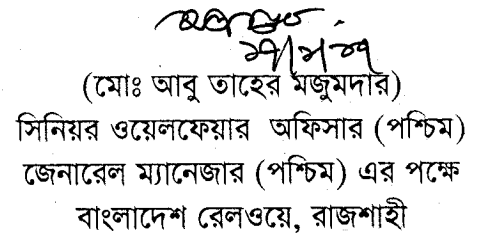 (মোঃ আবু তাহের মজুমদার)
সিনিয়র ওয়েলফেয়ার অফিসার (পশ্চিম)
জেনারেল ম্যানেজার (পশ্চিম) এর পক্ষে
বাংলাদেশ রেলওয়ে, রাজশাহী